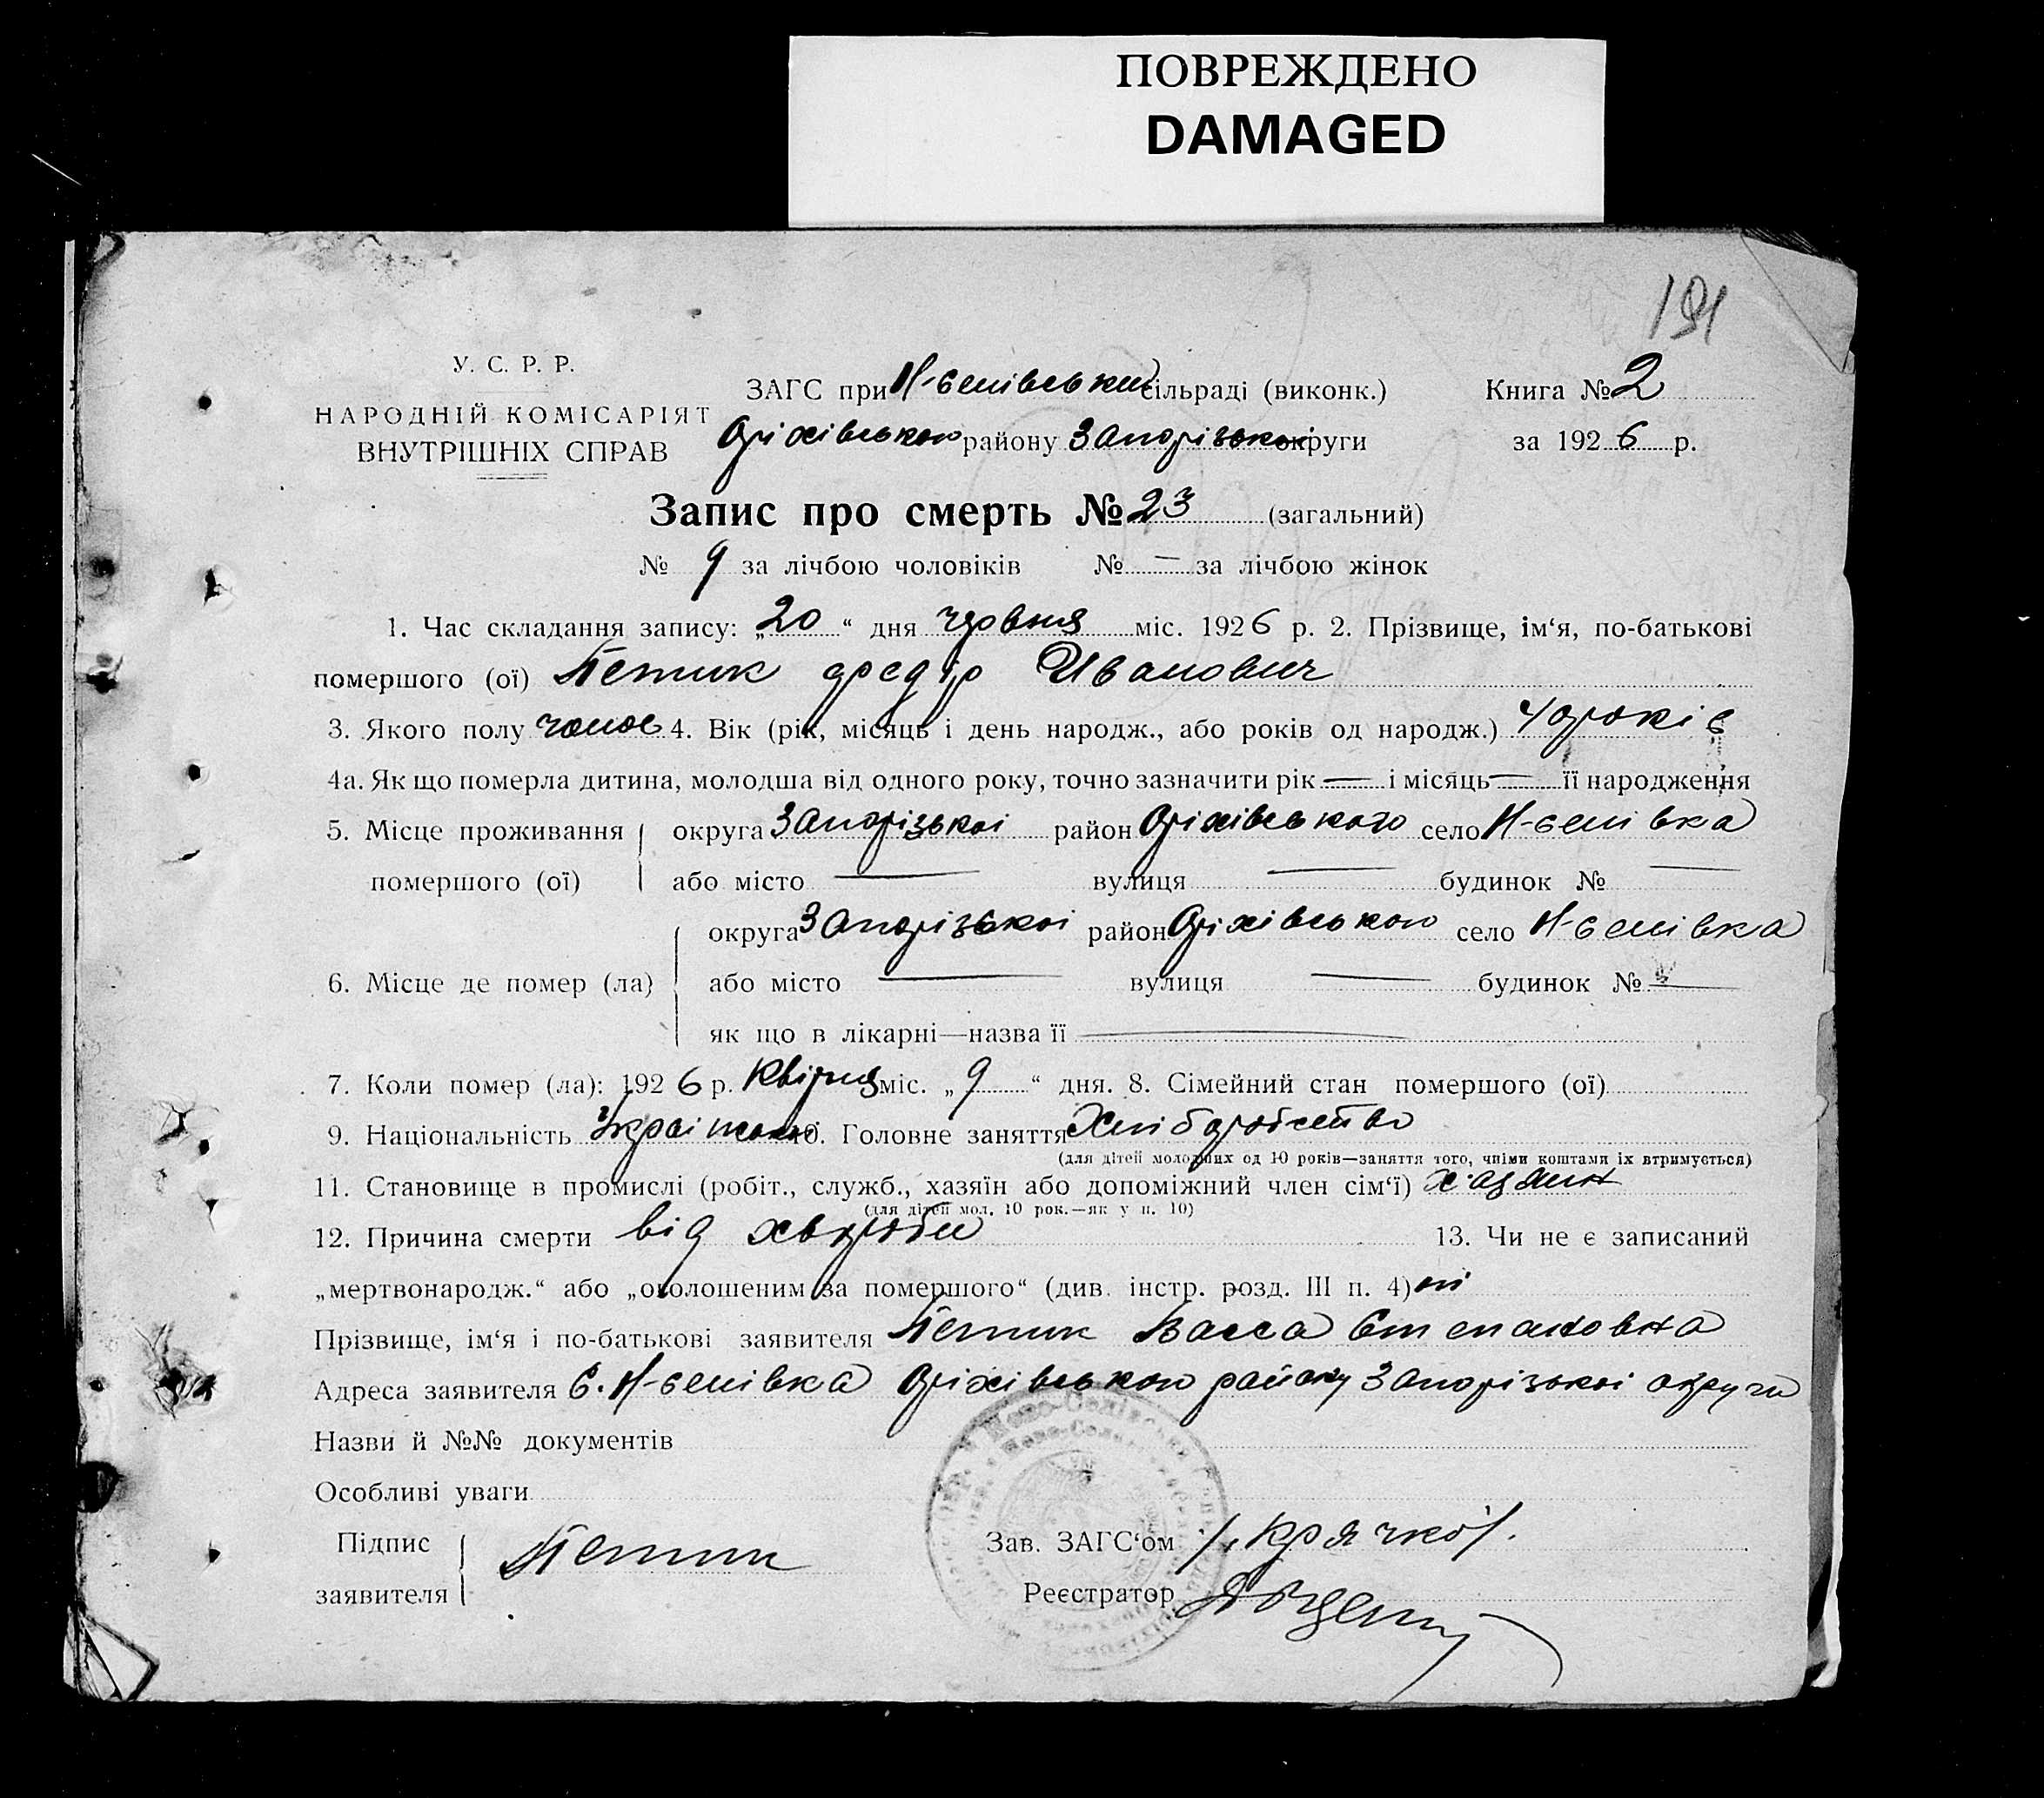 ПОВРЕЖДЕНО
DAMAGED
191
У. С. Р. Р.
НАРОДНІЙ КОМІСАРІЯТ
ВНУТРІШНІХ СПРАВ
ЗАГС при Н-Селівський сільраді (виконк.)
Оріхівського району Запорізької округи
Книга № 2
за 1926 р.
Запис про смерть № 23 (загальний)
№ 9 за лічбою чоловіків № — за лічбою жінок
1. Час складання запису: „20“ дня червня міс. 1926 р. 2. Прізвище, ім‘я, по-батькові
помершого (ої) Петик Федір Иванович
3. Якого полу 4. Вік (рік, місяць і день народж., або років од народж.) років
4а. Як що померла дитина, молодша від одного року, точно зазначити рік — і місяць — її народження
5. Місце проживання округа Запорізької район Оріхівського село Н-Селівка
помершого (ої) або місто — вулиця — будинок № —
округа Запорізької район Оріхівського село Н-Селівка
6. Місце де помер (ла) або місто — вулиця — будинок № —
як що в лікарні—назва її —
7. Коли помер (ла): 1926 р. Квітня міс. „9“ дня. 8. Сімейний стан помершого (ої)
9. Національність 10. Головне заняття Хліборобство
(для дітей молодших од 10 років—заняття того, чиїми коштами їх втримується)
11. Становище в промислі (робіт., служб., хазяїн або допоміжний член сім‘ї) хазяин
(для дітей мол. 10 рок.—як у п. 10)
12. Причина смерти від хвороби 13. Чи не є записаний
„мертвонародж.“ або „оголошеним за помершого“ (див. інстр. розд. III п. 4) ні
Прізвище, ім‘я і по-батькові заявителя Петик Васса Степановна
Адреса заявителя С. Н-Селівка Оріхівського району Запорізької округи
Назви й №№ документів
Особливі уваги
Підпис
заявителя Петик
Зав. ЗАГС‘ом /Крячко/.
Реєстратор